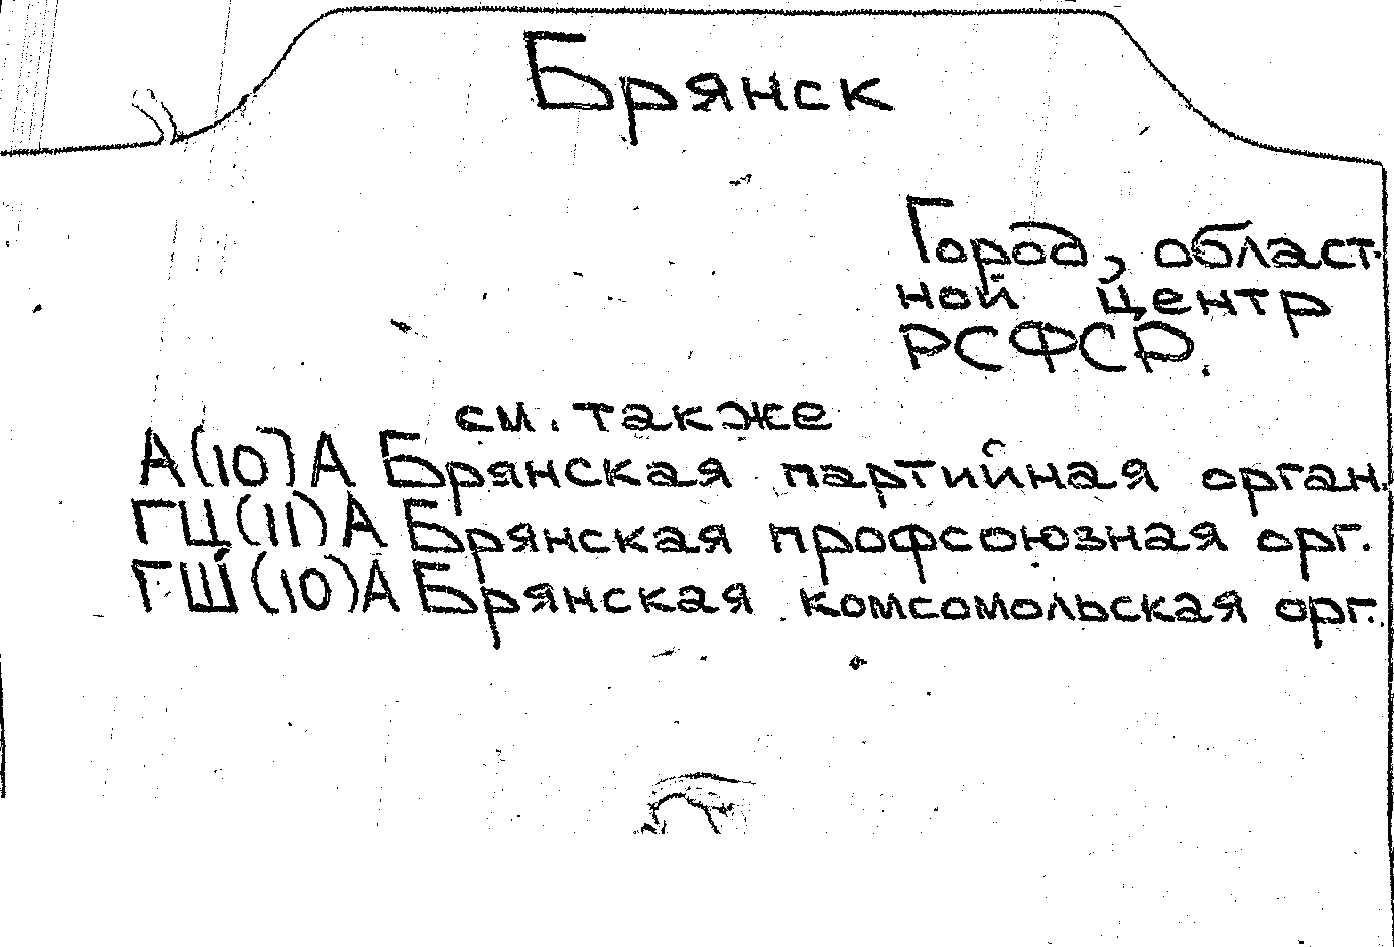 Брянск
Город, област-
ной центр
РСФСР.
см. также
А(10)А Брянская партийная орган.
ГЦ(11)А Брянская профсоюзная орг.
ГЩ(10)А Брянская комсомольская орг.